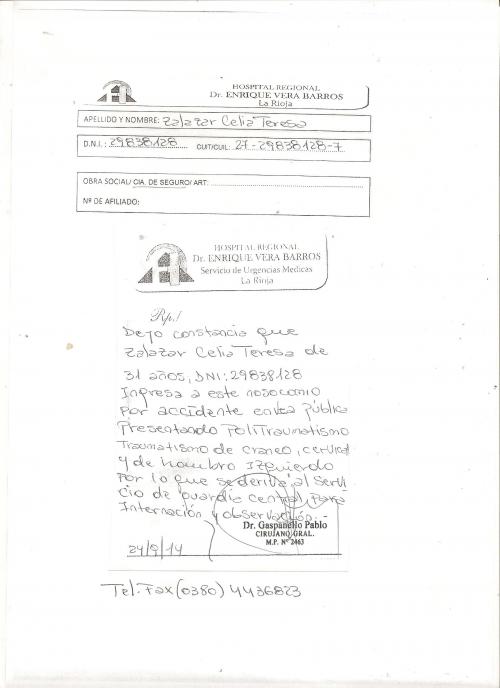 HOSPITAL REGIONAL
Dr. ENRIQUE VERA BARROS
La Rioja
APELLIDO Y NOMBRE: Zalazar Celia Teresa
D.N.I.: 29838128 CUIT/CUIL: 27-29838128-7
OBRA SOCIAL/ CIA. DE SEGURO/ ART:
Nº DE AFILIADO:
HOSPITAL REGIONAL
Dr. ENRIQUE VERA BARROS
Servicio de Urgencias Medicas
La Rioja
Rp./
Dejo constancia que
Zalazar Celia Teresa de
31 años, DNI: 29838128
Ingresa a este nosocomio
Por accidente en vía pública
Presentando PoliTraumatismo
Traumatismo de craneo, cervical
y de hombro Izquierdo
Por lo que se deriva al Servi
cio de guardia central, Para
Internación y observación.-
Dr. Gaspanello Pablo
CIRUJANO GRAL.
M.P. Nº 2463
24/9/14
Tel: Fax (0380) 4436823